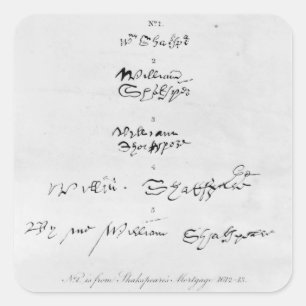 Nº 1.
Wm Shakspe
2
William
Shakspere
3
William
Shakspere
4
William Shakspere
5
By me William Shakspeare
Nº 1. is from Shakspeare's Mortgage 1612-13.